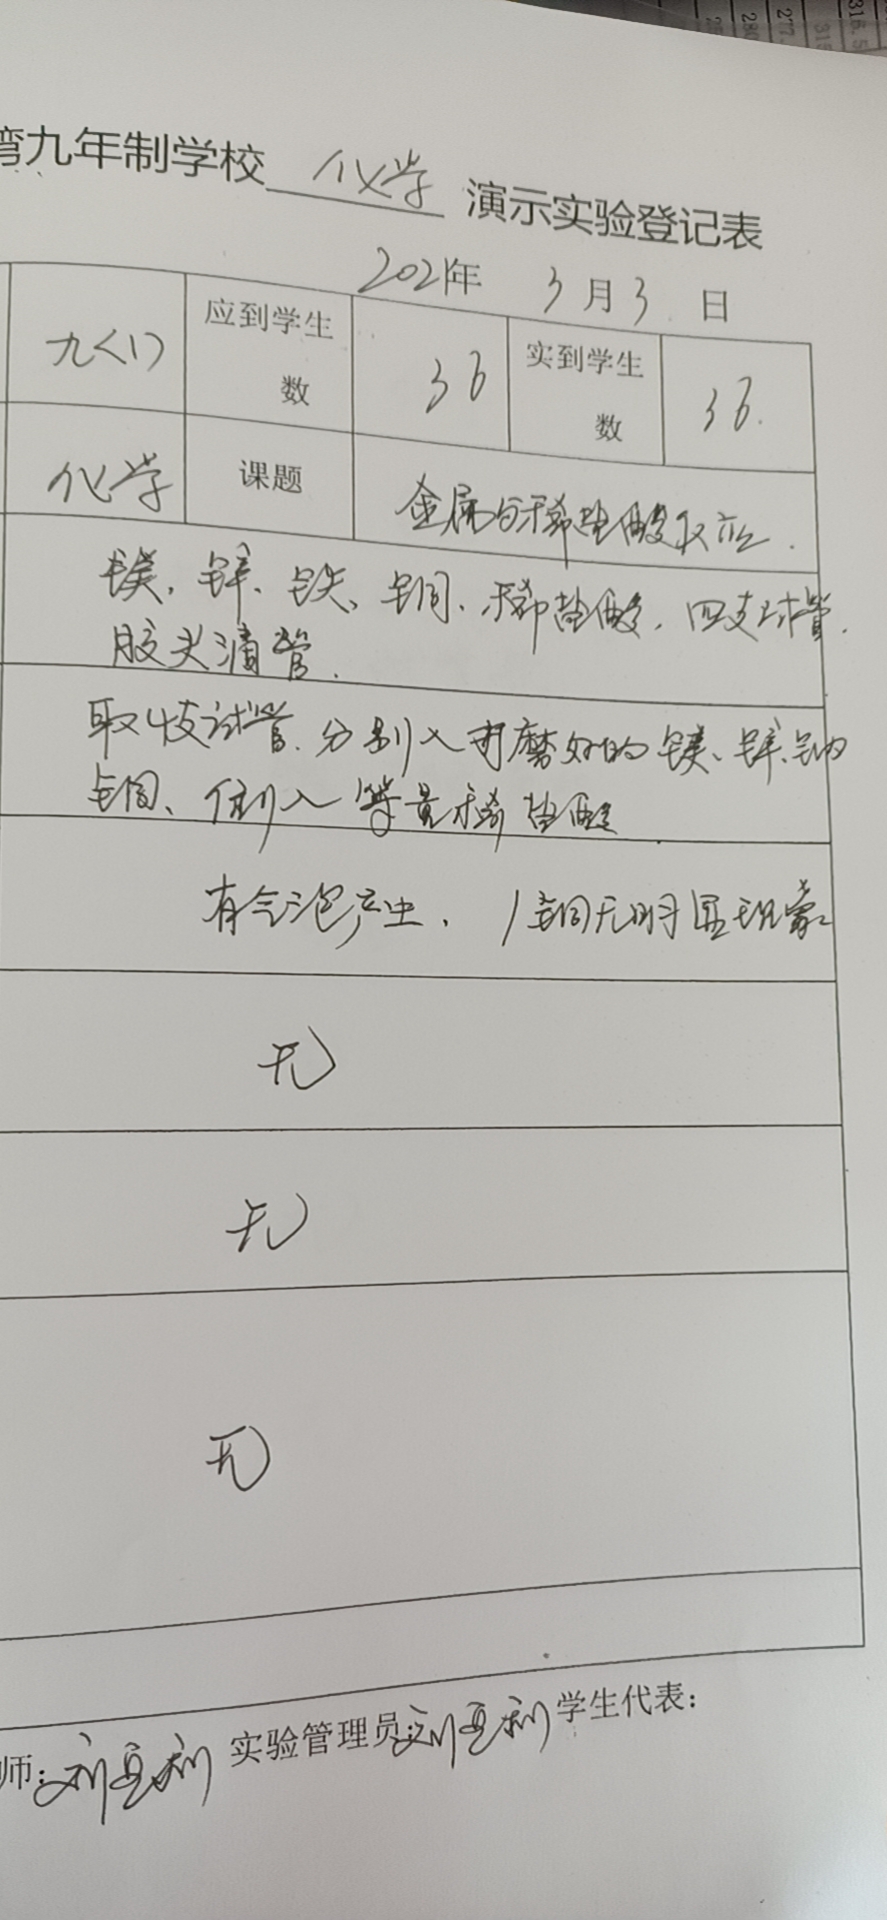 湾九年制学校 化学 演示实验登记表
2021年 3月3日
九(1) 应到学生数 36 实到学生数 36.
化学 课题 金属与稀盐酸反应.
镁、锌、铁、铜、稀盐酸、四支试管.
胶头滴管.
取4支试管.分别入打磨好的镁、锌、
铜、倒入等量稀盐酸
有气泡产生. 铜无明显现象
无
无
无
师: 实验管理员: 学生代表: